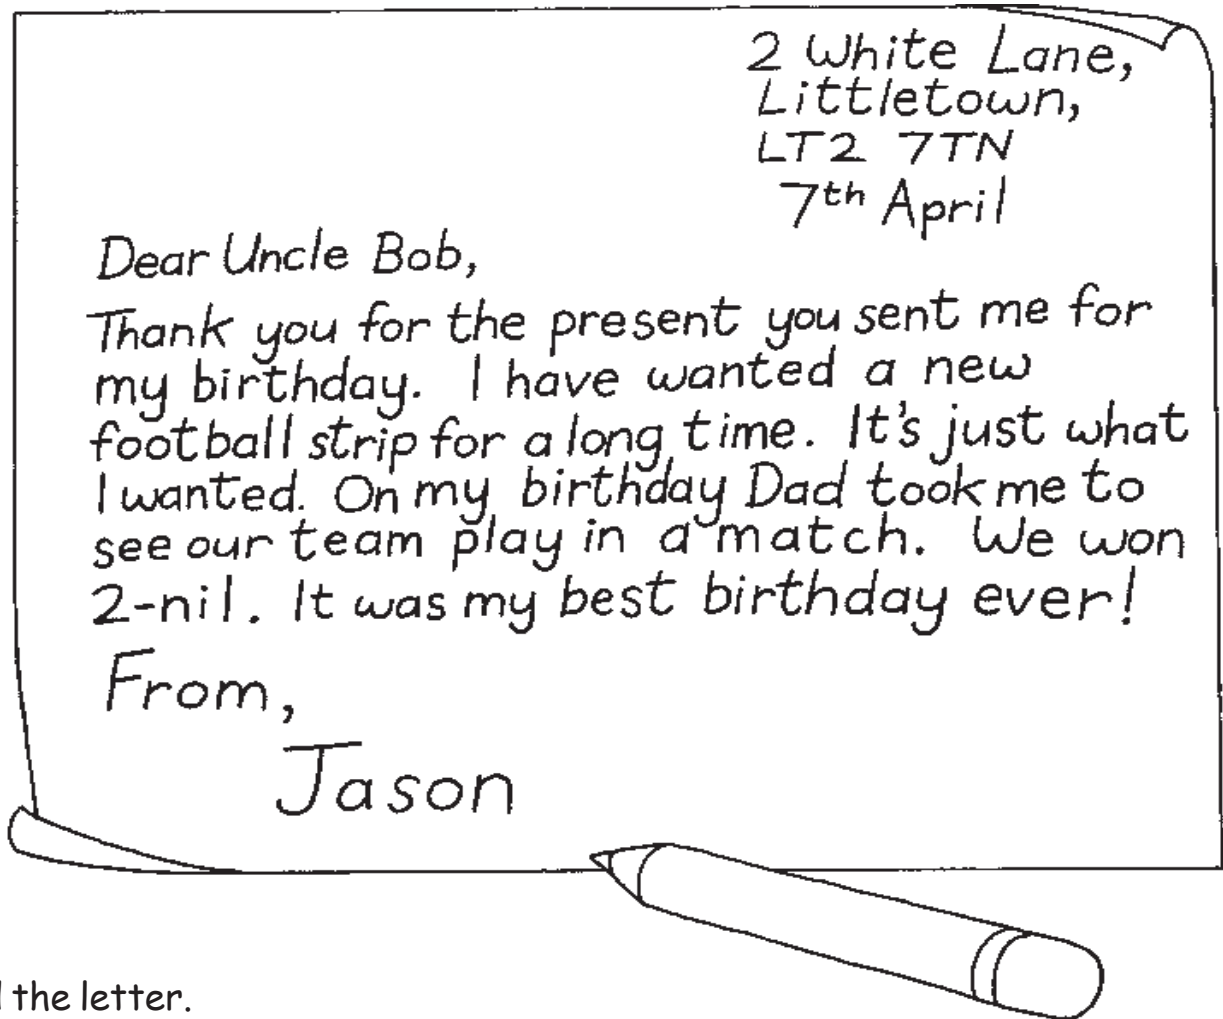 2 White Lane,
Littletown,
LT2 7TN
7th April
Dear Uncle Bob,
Thank you for the present you sent me for
my birthday. I have wanted a new
football strip for a long time. It's just what
I wanted. On my birthday Dad took me to
see our team play in a match. We won
2-nil. It was my best birthday ever!
From,
Jason
the letter.